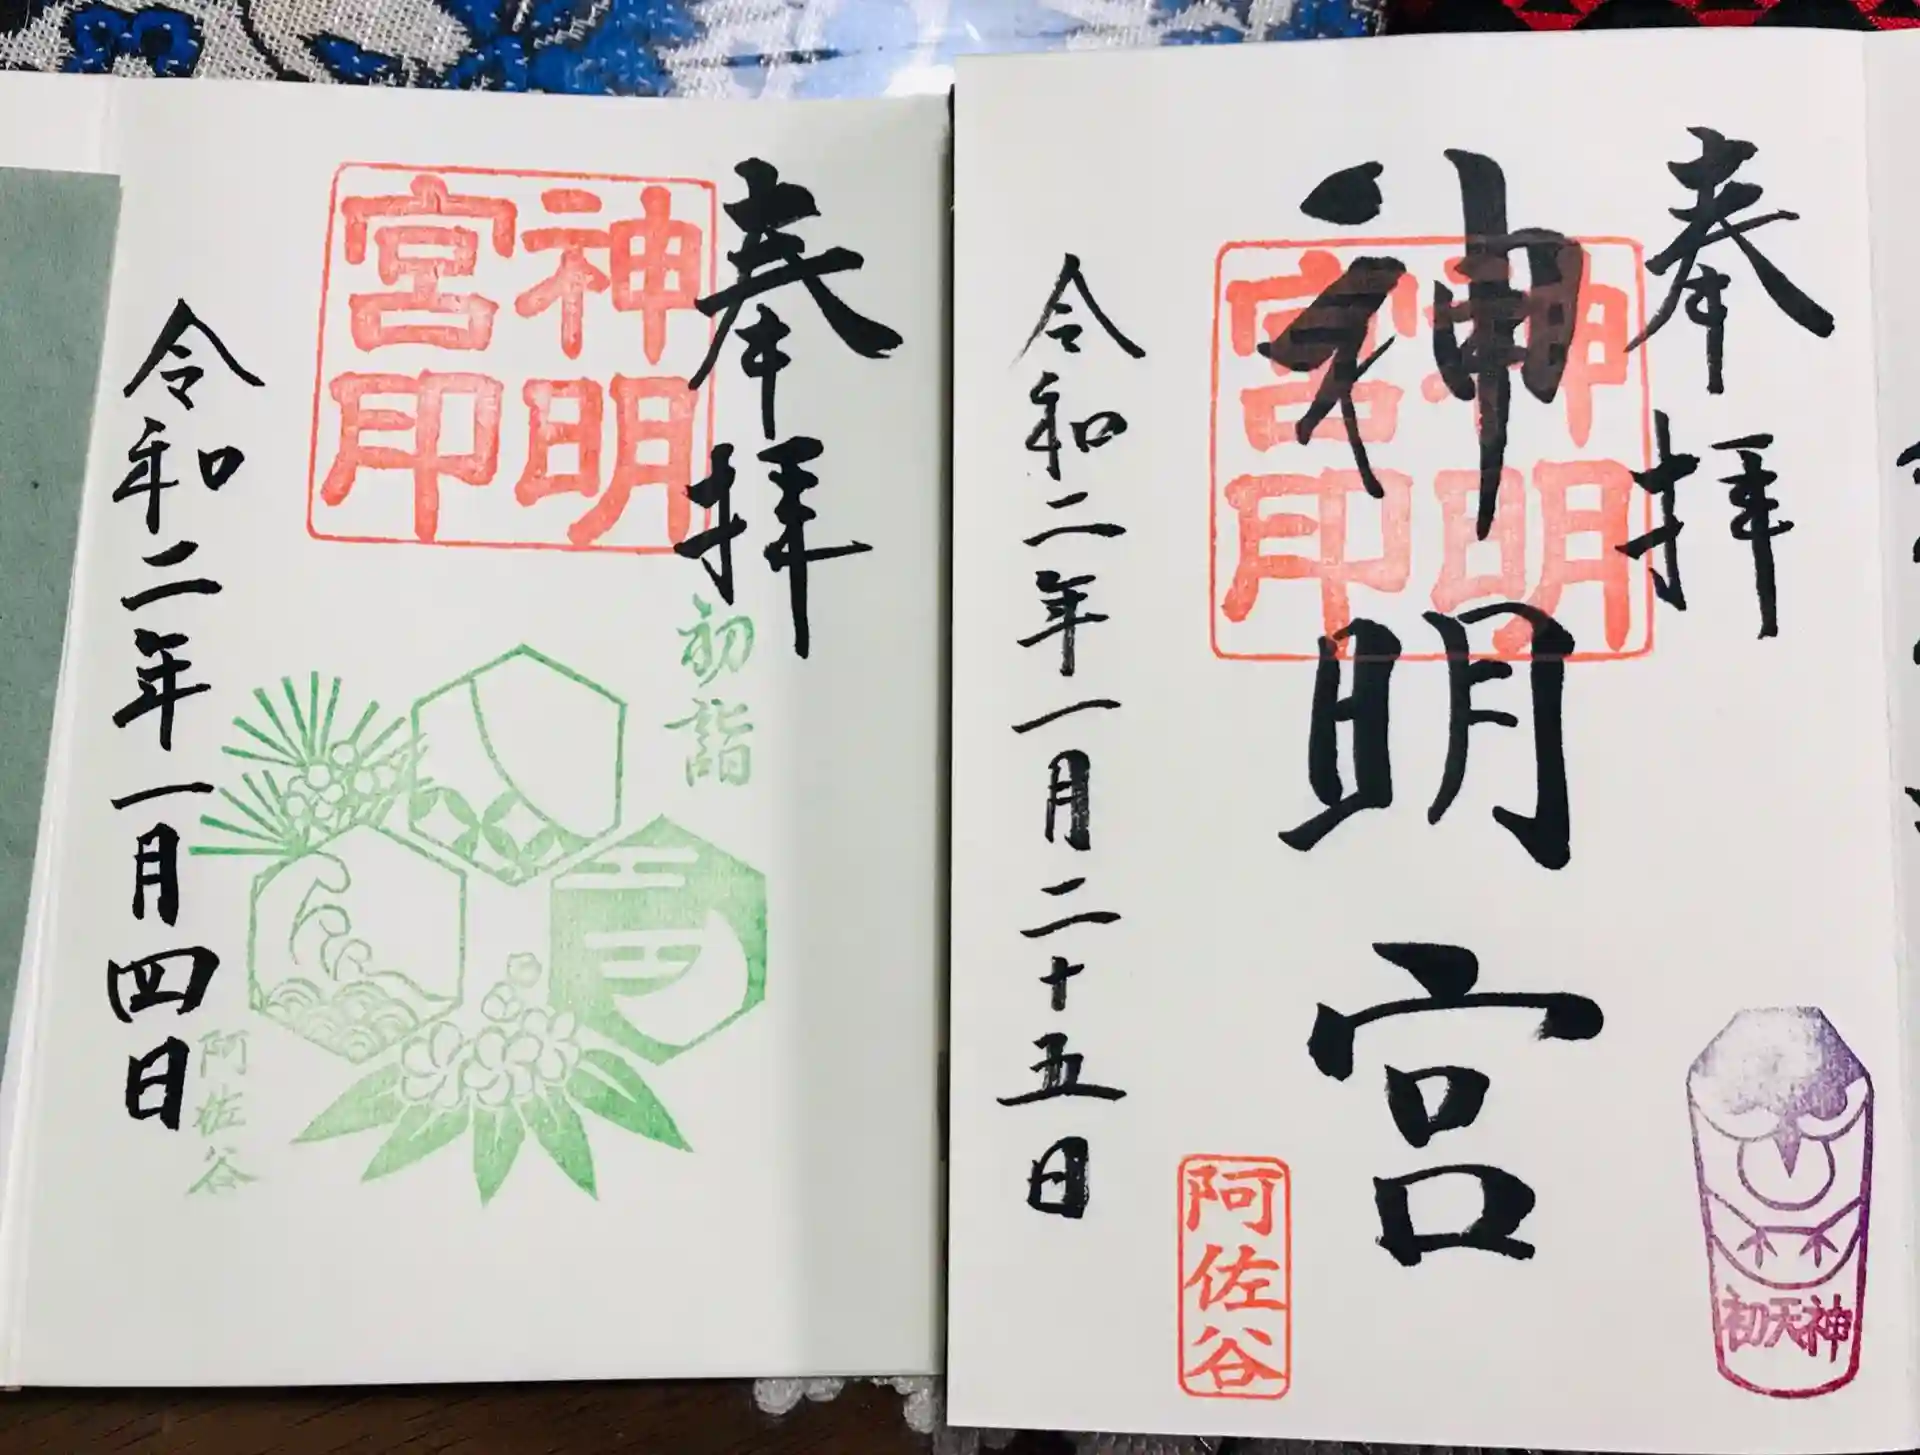 奉拝
神明宮印
初詣
阿佐谷
令和二年一月四日
奉拝
神明宮
神明宮印
令和二年一月二十五日
阿佐谷
初天神